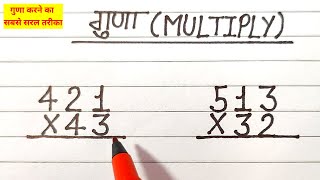 गुणा करने का
सबसे सरल तरीका
गुणा (MULTIPLY)
421 513
X43 X32